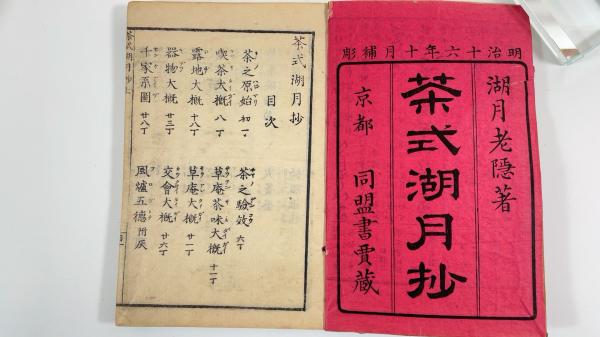 明治十六年十月補彫
湖月老隠著
茶式湖月抄
京都 同盟書賈蔵
茶式湖月抄
目次
茶之原始 初丁
茶之驗效 六丁
喫茶大概 八丁
草庵茶味大概 十一丁
露地大概 十八丁
草庵大概 廿一丁
器物大概 廿三丁
交會大概 廿六丁
千家系圖 廿八丁
風爐五德
茶式湖月抄上